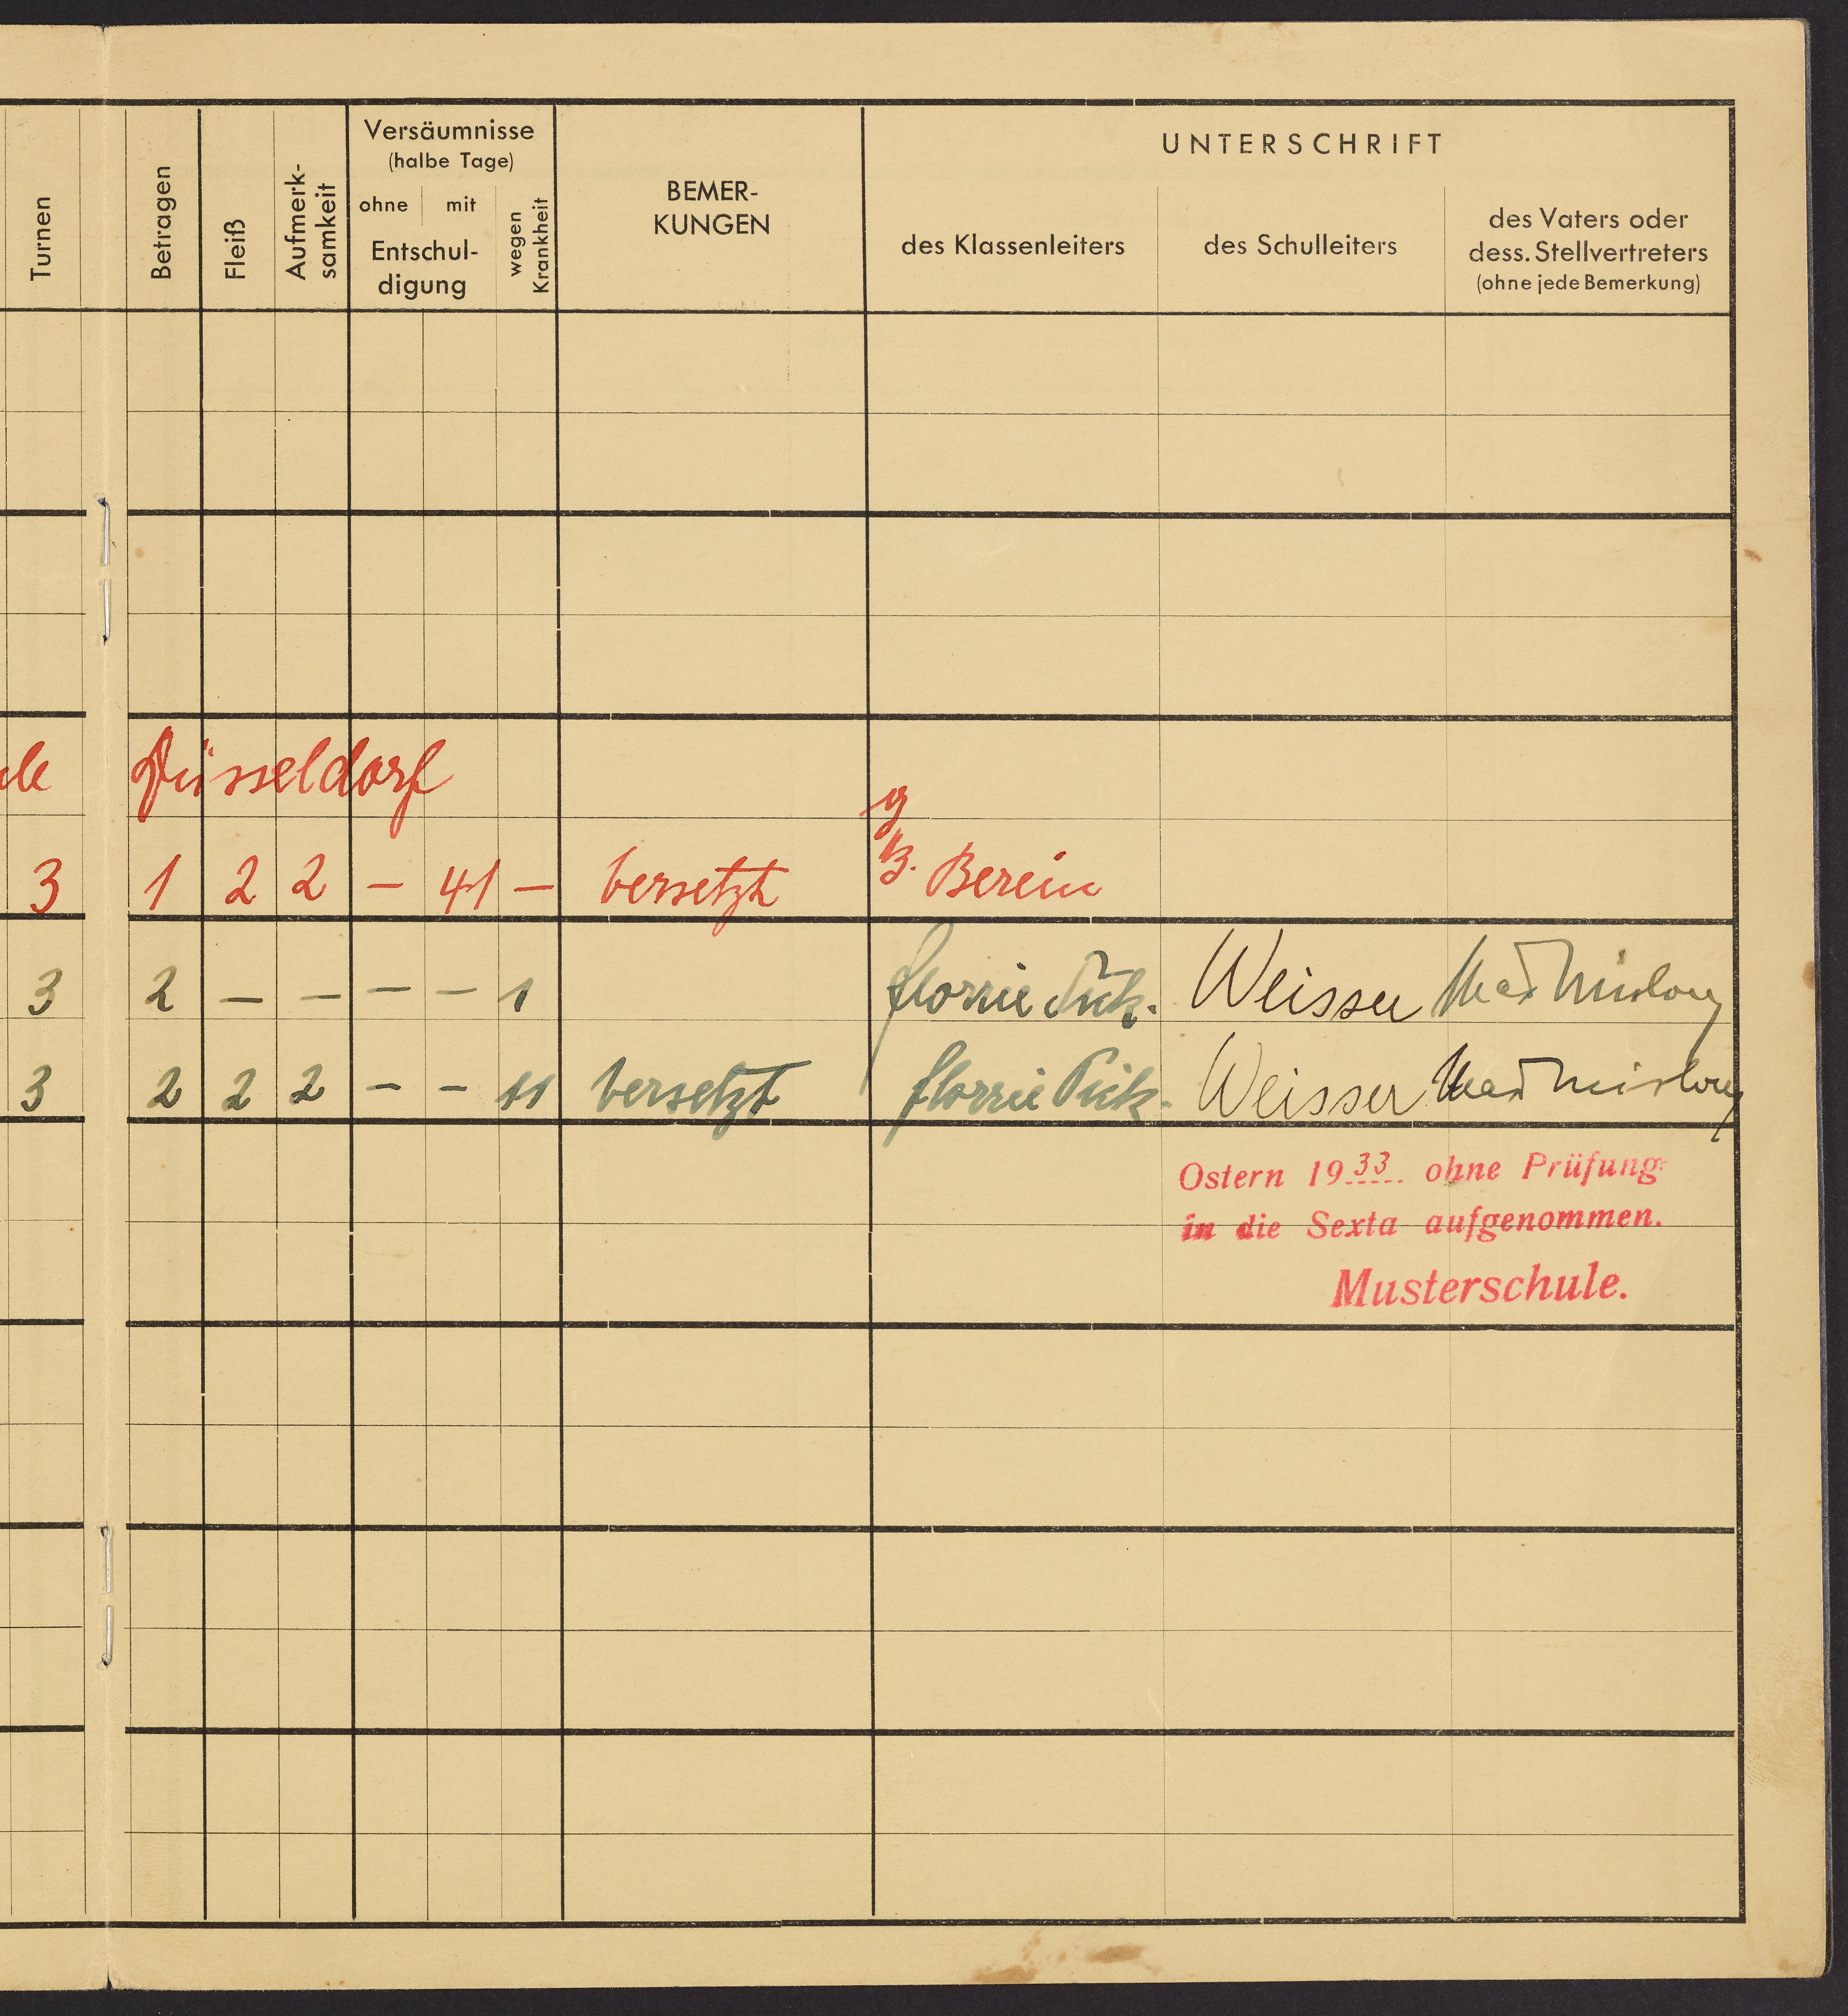 Turnen
Betragen
Fleiß
Aufmerk-
samkeit
Versäumnisse
(halbe Tage)
ohne mit
Entschul-
digung
wegen
Krankheit
BEMER-
KUNGEN
UNTERSCHRIFT
des Klassenleiters
des Schulleiters
des Vaters oder
dess. Stellvertreters
(ohne jede Bemerkung)
Düsseldorf
3 1 2 2 — 41 — versetzt
3 2 — — — — 1 Florrie Weisser
3 2 2 2 — — 11 versetzt Florrie Weisser
Ostern 1933 ohne Prüfung
in die Sexta aufgenommen.
Musterschule.